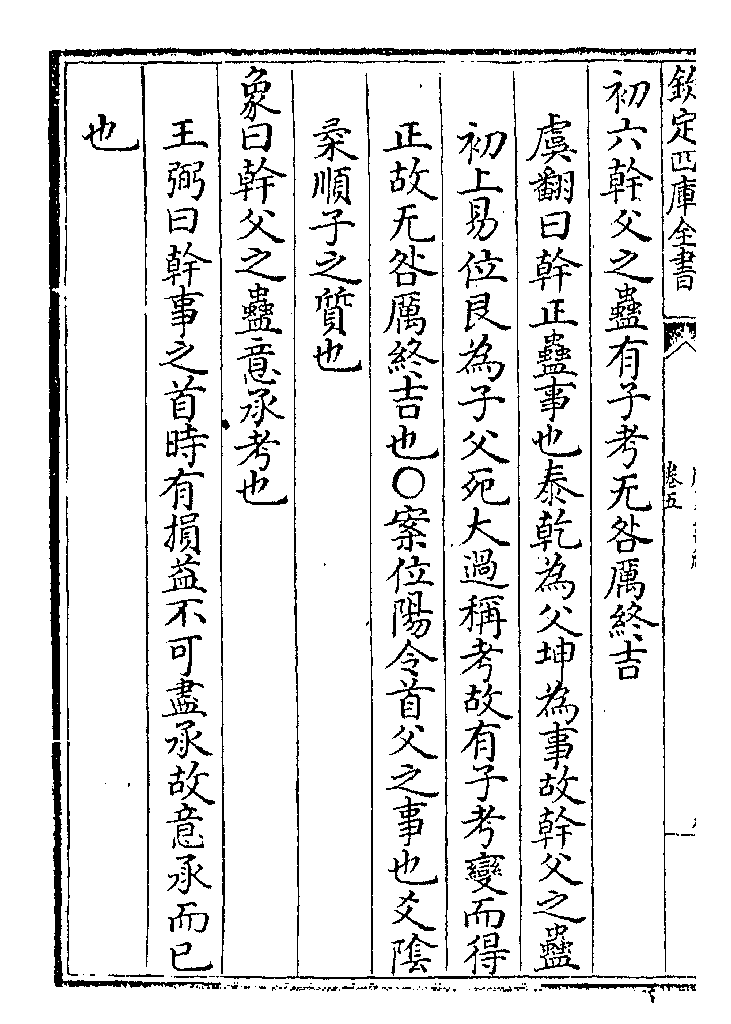 欽定四庫全書
卷五
初六幹父之蠱有子考无咎厲終吉
虞翻曰幹正蠱事也泰乾為父坤為事故幹父之蠱
初上易位艮為子父死大過稱考故有子考變而得
正故无咎厲終吉也○案位陽令首父之事也爻陰
柔順子之質也
象曰幹父之蠱意承考也
王弼曰幹事之首時有損益不可盡承故意承而已
也